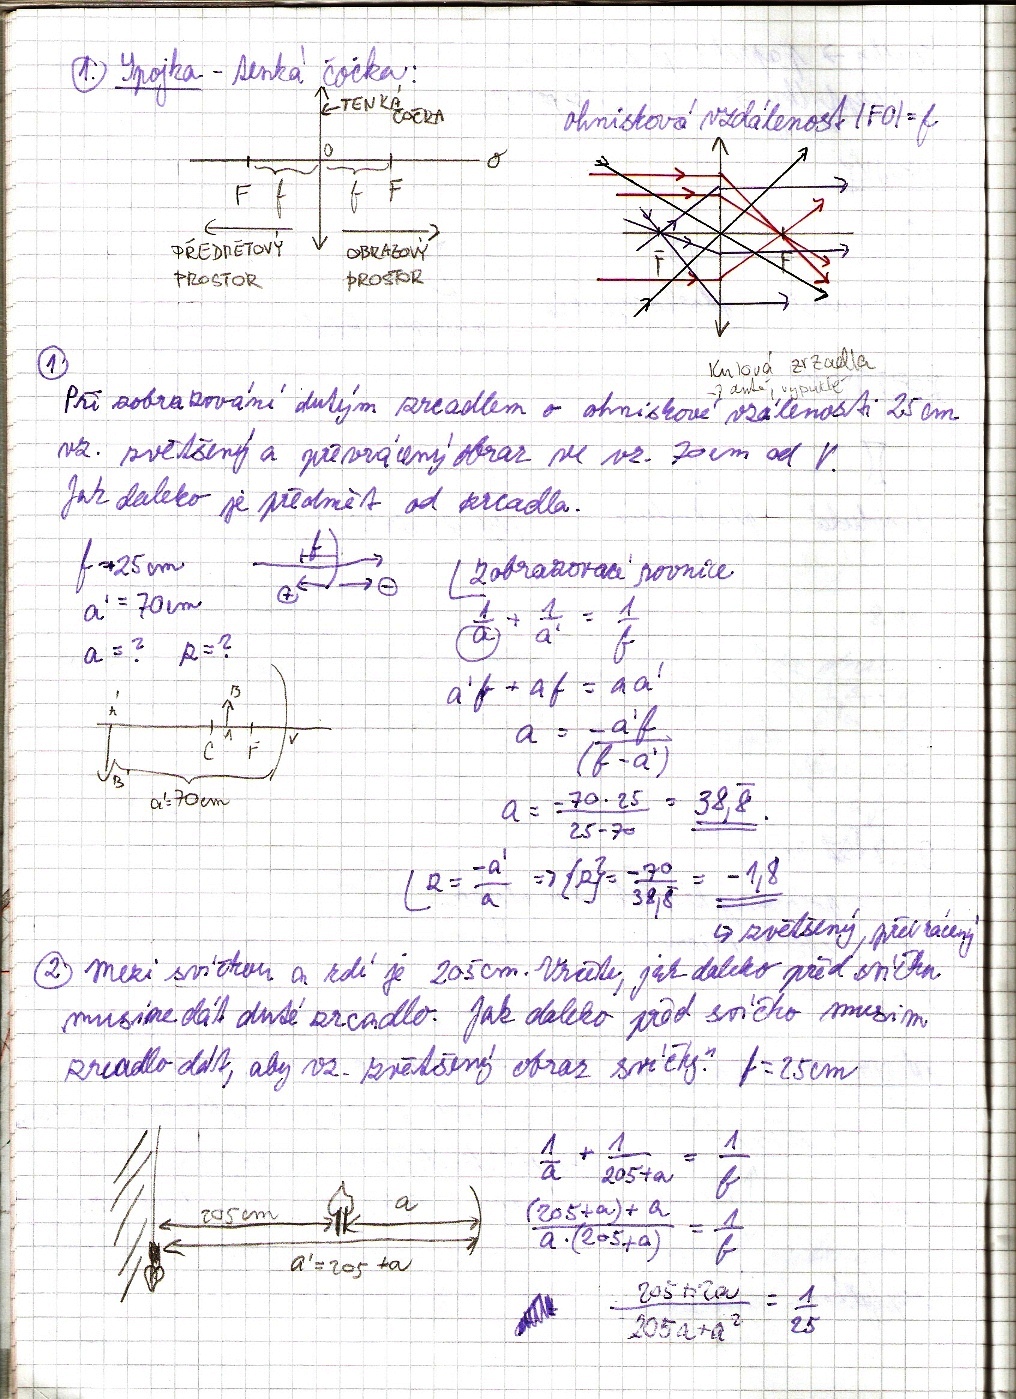 1. Spojka - tenká čočka:
← TENKÁ
ČOČKA
O
o
F f f F
PŘEDMĚTOVÝ
PROSTOR
OBRAZOVÝ
PROSTOR
ohnisková vzdálenost |FO| = f
F F
Kulová zrzadla
→ dutá, vypuklé
1
Při zobrazování dutým zrcadlem o ohniskové vzálenosti 25 cm
vz. zvětšený a převrácený obraz ve vz. 70 cm od V.
Jak daleko je předmět od zrcadla.
f = +25 cm
a' = 70 cm
a = ? Z = ?
+f
+ -
A' B C A F V
B'
a' = 70 cm
Zobrazovací rovnice
1/a + 1/a' = 1/f
a'f + af = aa'
a = -a'f / (f - a')
a = -70 · 25 / 25 - 70 = 38,8̄.
Z = -a'/a => {Z} = -70/38,8̄ = -1,8
↳ zvětšený, převrácený
2. Mezi svíčkou a zdí je 205 cm. Určete, jak daleko před svíčku
musíme dát duté zrcadlo. Jak daleko před svíčko musím
zrcadlo dát, aby vz. zvětšený obraz svíčky? f = 25 cm
205 cm a
a' = 205 + a
1/a + 1/205+a = 1/f
(205+a) + a / a · (205+a) = 1/f
205 + 2a / 205a + a² = 1/25